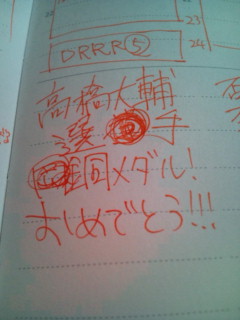 23
DRRR⑤
24
高橋大輔
選手
銅メダル!
おめでとう!!!